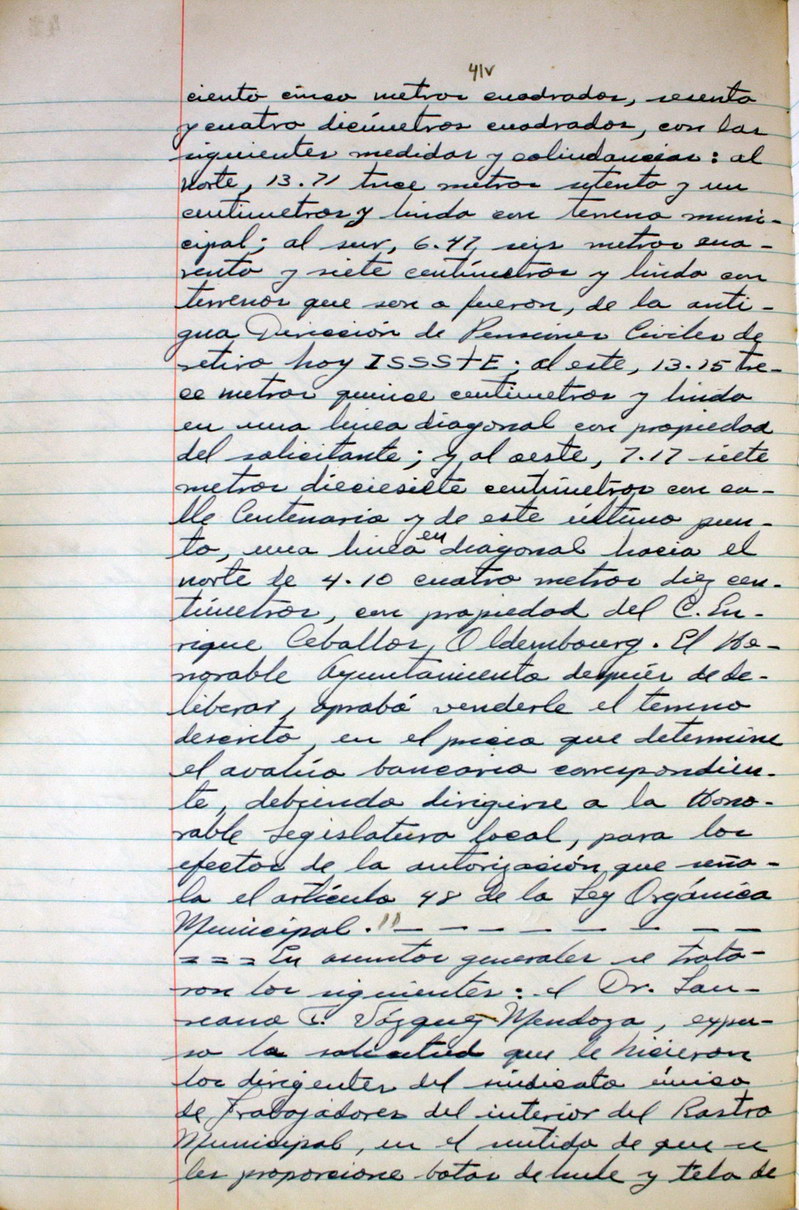 41v
ciento cinco metros cuadrados, sesenta
y cuatro decímetros cuadrados, con las
siguientes medidas y colindancias: al
norte, 13.71 trece metros setenta y un
centimetros y linda con terreno muni-
cipal; al sur, 6.47 seis metros cua-
renta y siete centímetros y linda con
terrenos que son o fueron, de la anti-
gua Dirección de Pensiones Civiles de
retiro hoy ISSSTE; al este, 13.15 tre-
ce metros quince centimetros y linda
en una linea diagonal con propiedad
del solicitante; y al oeste, 7.17 siete
metros dieciesiete centímetros con ca-
lle Centenario y de este último pun-
to, una linea en diagonal hacia el
norte de 4.10 cuatro metros diez cen-
tímetros, con propiedad del C. En-
rique Ceballos, Oldembourg. El Ho-
norable Ayuntamiento despúes de de-
liberar, aprobó venderle el terreno
descrito, en el precio que determine
el avalúo bancario correspondien-
te, debiendo dirigirse a la Hono-
rable Legislatura local, para los
efectos de la autorización, que seña-
la el artículo 48 de la Ley Orgánica
Municipal." — — — — — — — —
= = = En asuntos generales se trata-
ron los siguientes: el Dr. Lau-
reano T. Vázquez Mendoza, expu-
so la solicitud que le hicieron
los dirigentes del sindicato único
de Trabajadores del interior del Rastro
Municipal, en el sentido de que se
les proporcione botas de hule y tela de